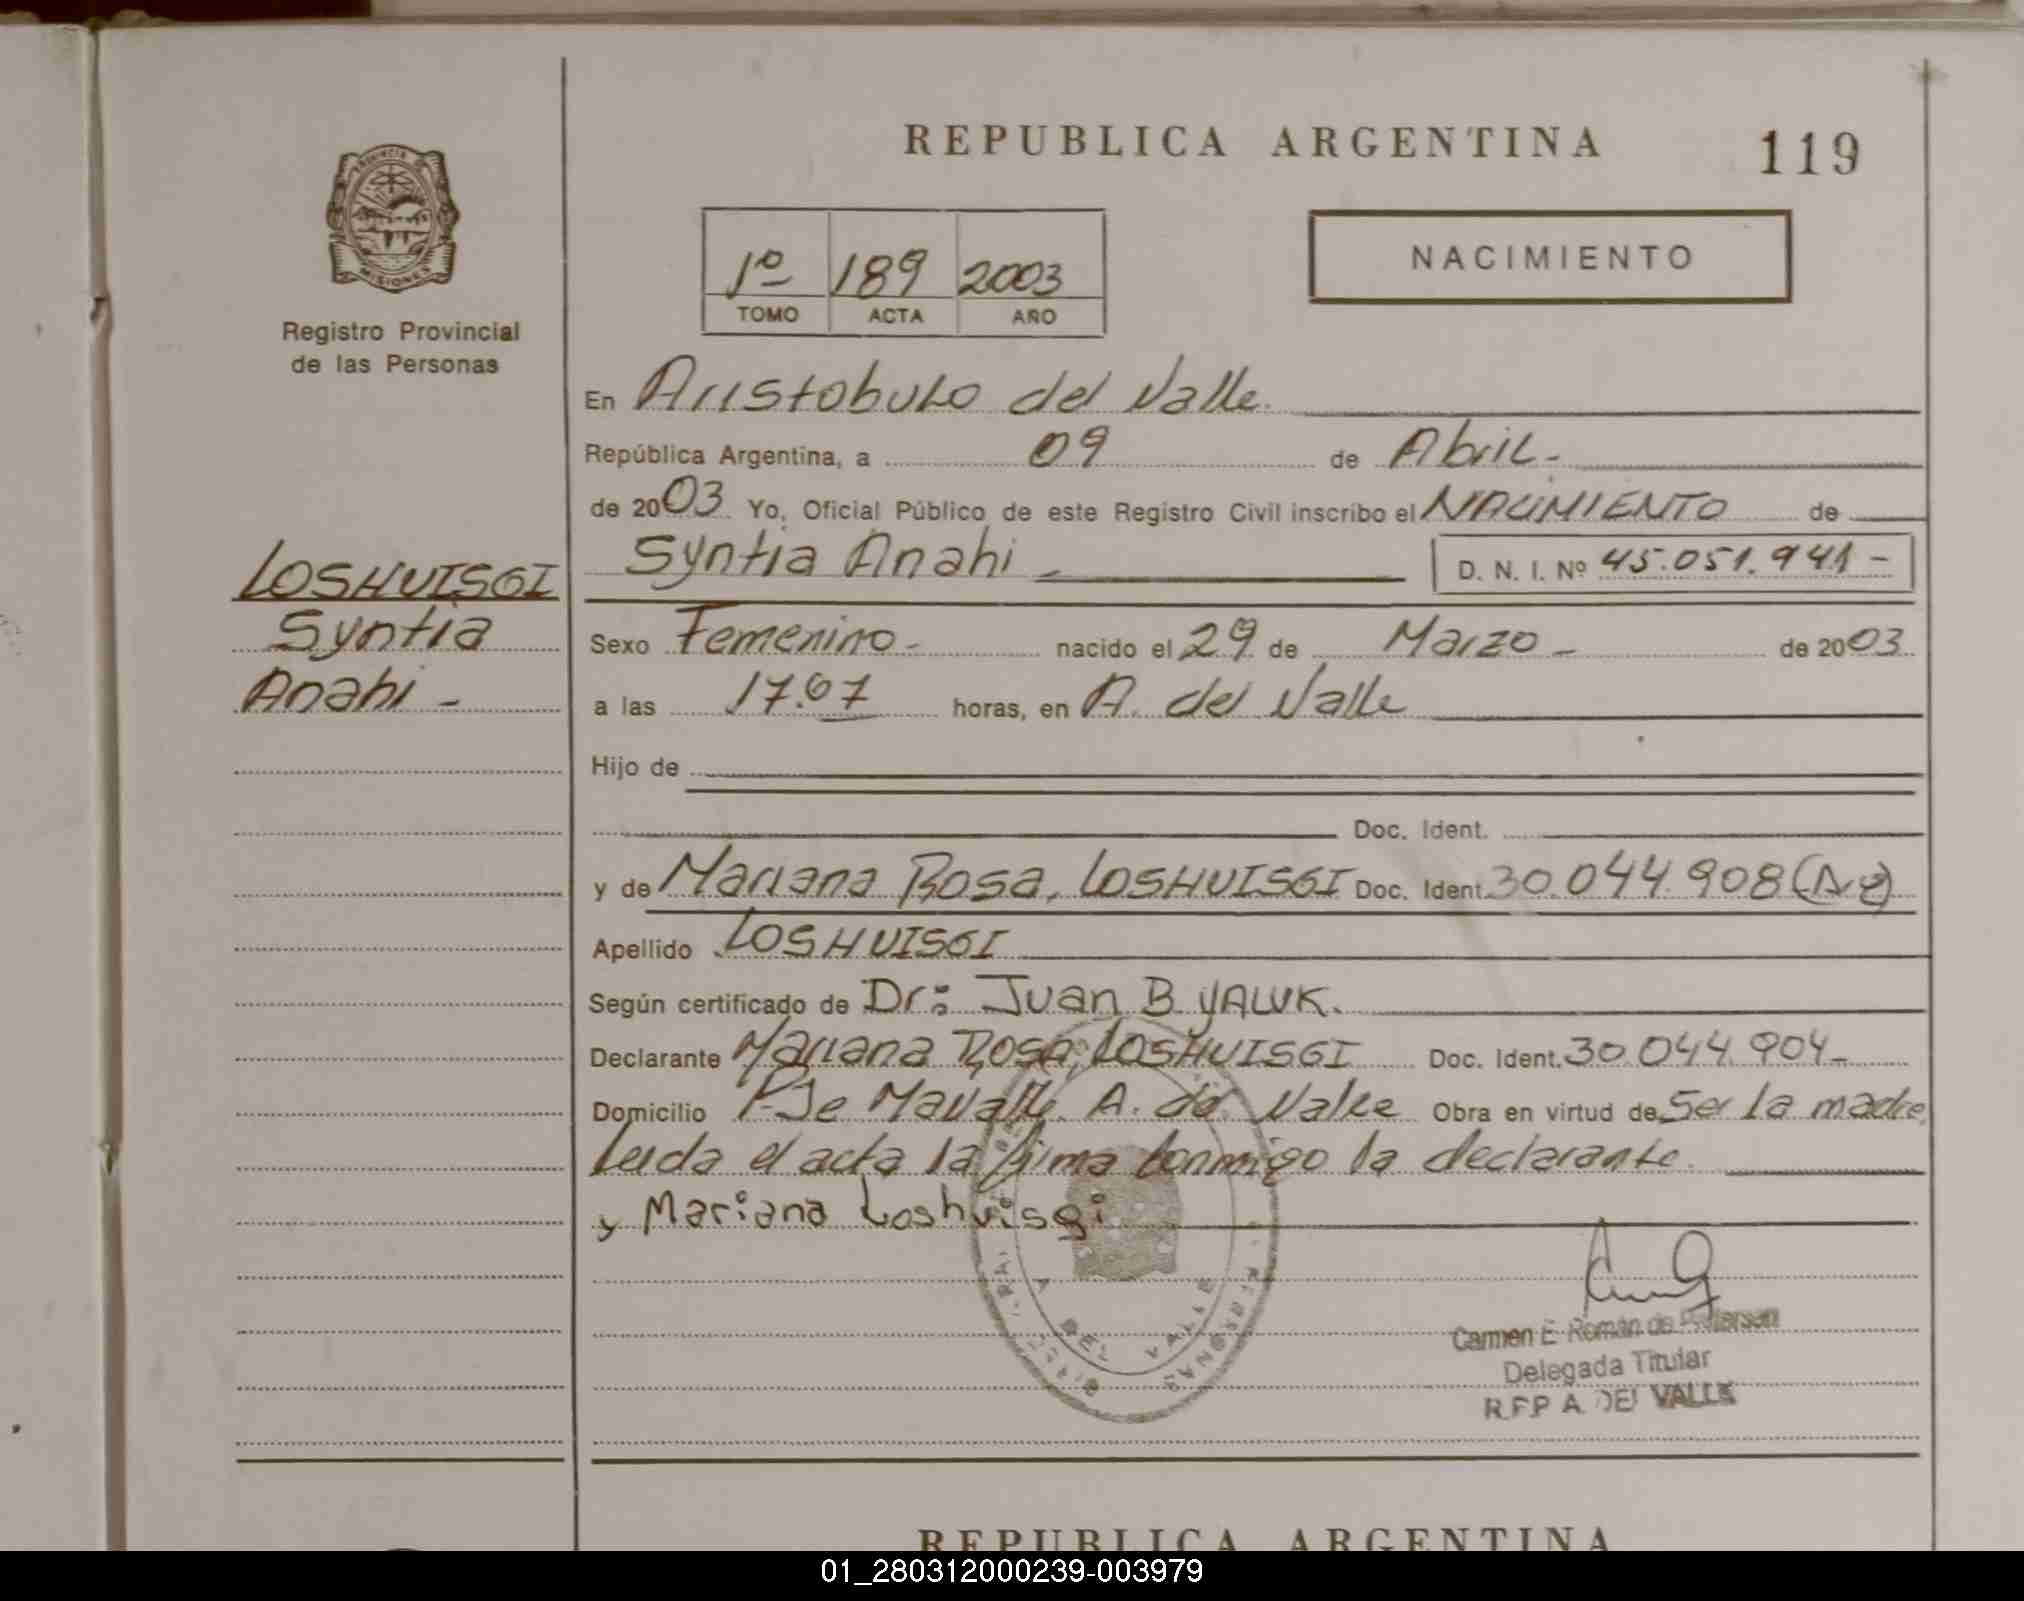 REPUBLICA ARGENTINA
119
PROVINCIA DE
MISIONES
Registro Provincial
de las Personas
1º 189 2003
TOMO ACTA AÑO
NACIMIENTO
En Aristobulo del Valle.
República Argentina, a 09 de Abril.-
de 2003 Yo, Oficial Público de este Registro Civil inscribo el NACIMIENTO de
Syntia Anahi - D. N. I. Nº 45.051.941-
LOSHUISGI
Syntia
Anahi -
Sexo Femenino- nacido el 29 de Marzo - de 2003
a las 17.07 horas, en A. del Valle
Hijo de
Doc. Ident.
y de Mariana Rosa, LOSHUISGI Doc. Ident. 30.044.908
Apellido LOSHUISGI
Según certificado de Dr: Juan B. YALUK.
Declarante Mariana Rosa, LOSHUISGI Doc. Ident. 30.044.904-
Domicilio A. del Valle Obra en virtud de Ser la madre,
Leida el acta la firma conmigo la declarante.
y Mariana Loshuisgi
A DEL VALLE
Carmen E. Román de
Delegada Titular
R.P.P A. DEL VALLE
REPUBLICA ARGENTINA
01_280312000239-003979